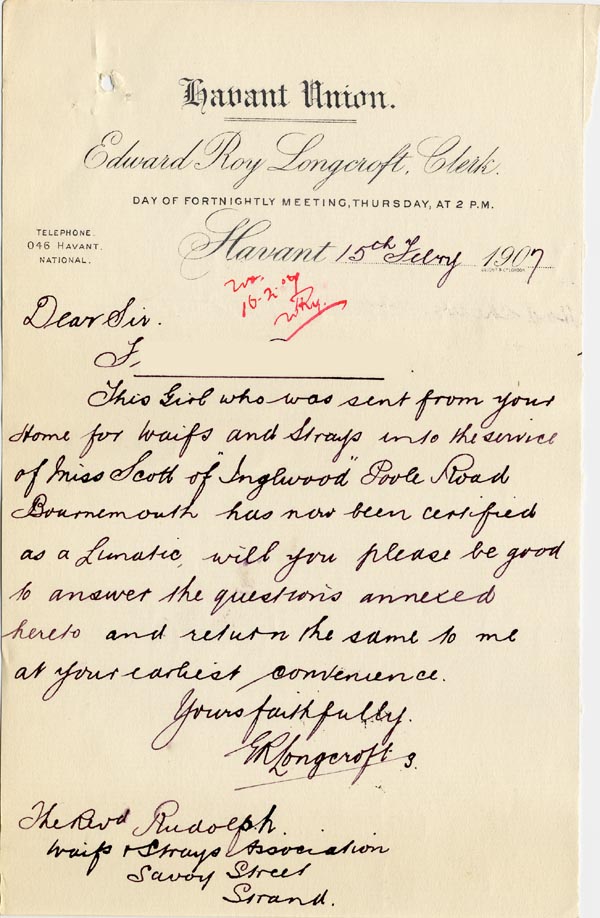 Havant Union.
Edward Roy Longcroft, Clerk.
DAY OF FORTNIGHTLY MEETING, THURSDAY, AT 2 P.M.
TELEPHONE.
046 HAVANT.
NATIONAL.
Havant 15th Febry 1907
16.2.07
Dear Sir.
F,
This Girl who was sent from your
Home for Waifs and Strays into the service
of Miss Scott of "Inglwood" Poole Road
Bournemouth has now been certified
as a Lunatic, will you please be good
to answer the questions annexed
hereto and return the same to me
at your earliest convenience.
Yours faithfully.
ERLongcroft
The Revd Rudolph.
Waifs & Strays Association
Savoy Street
Strand.